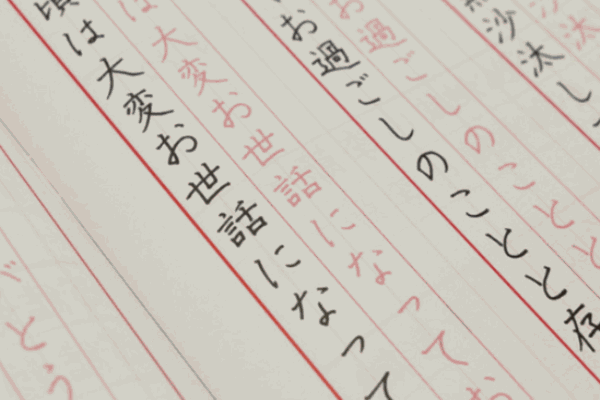 沙汰
沙汰し
お過ごしのことと
お過ごしのことと存
は大変お世話になってお
頃は大変お世話になって
とう